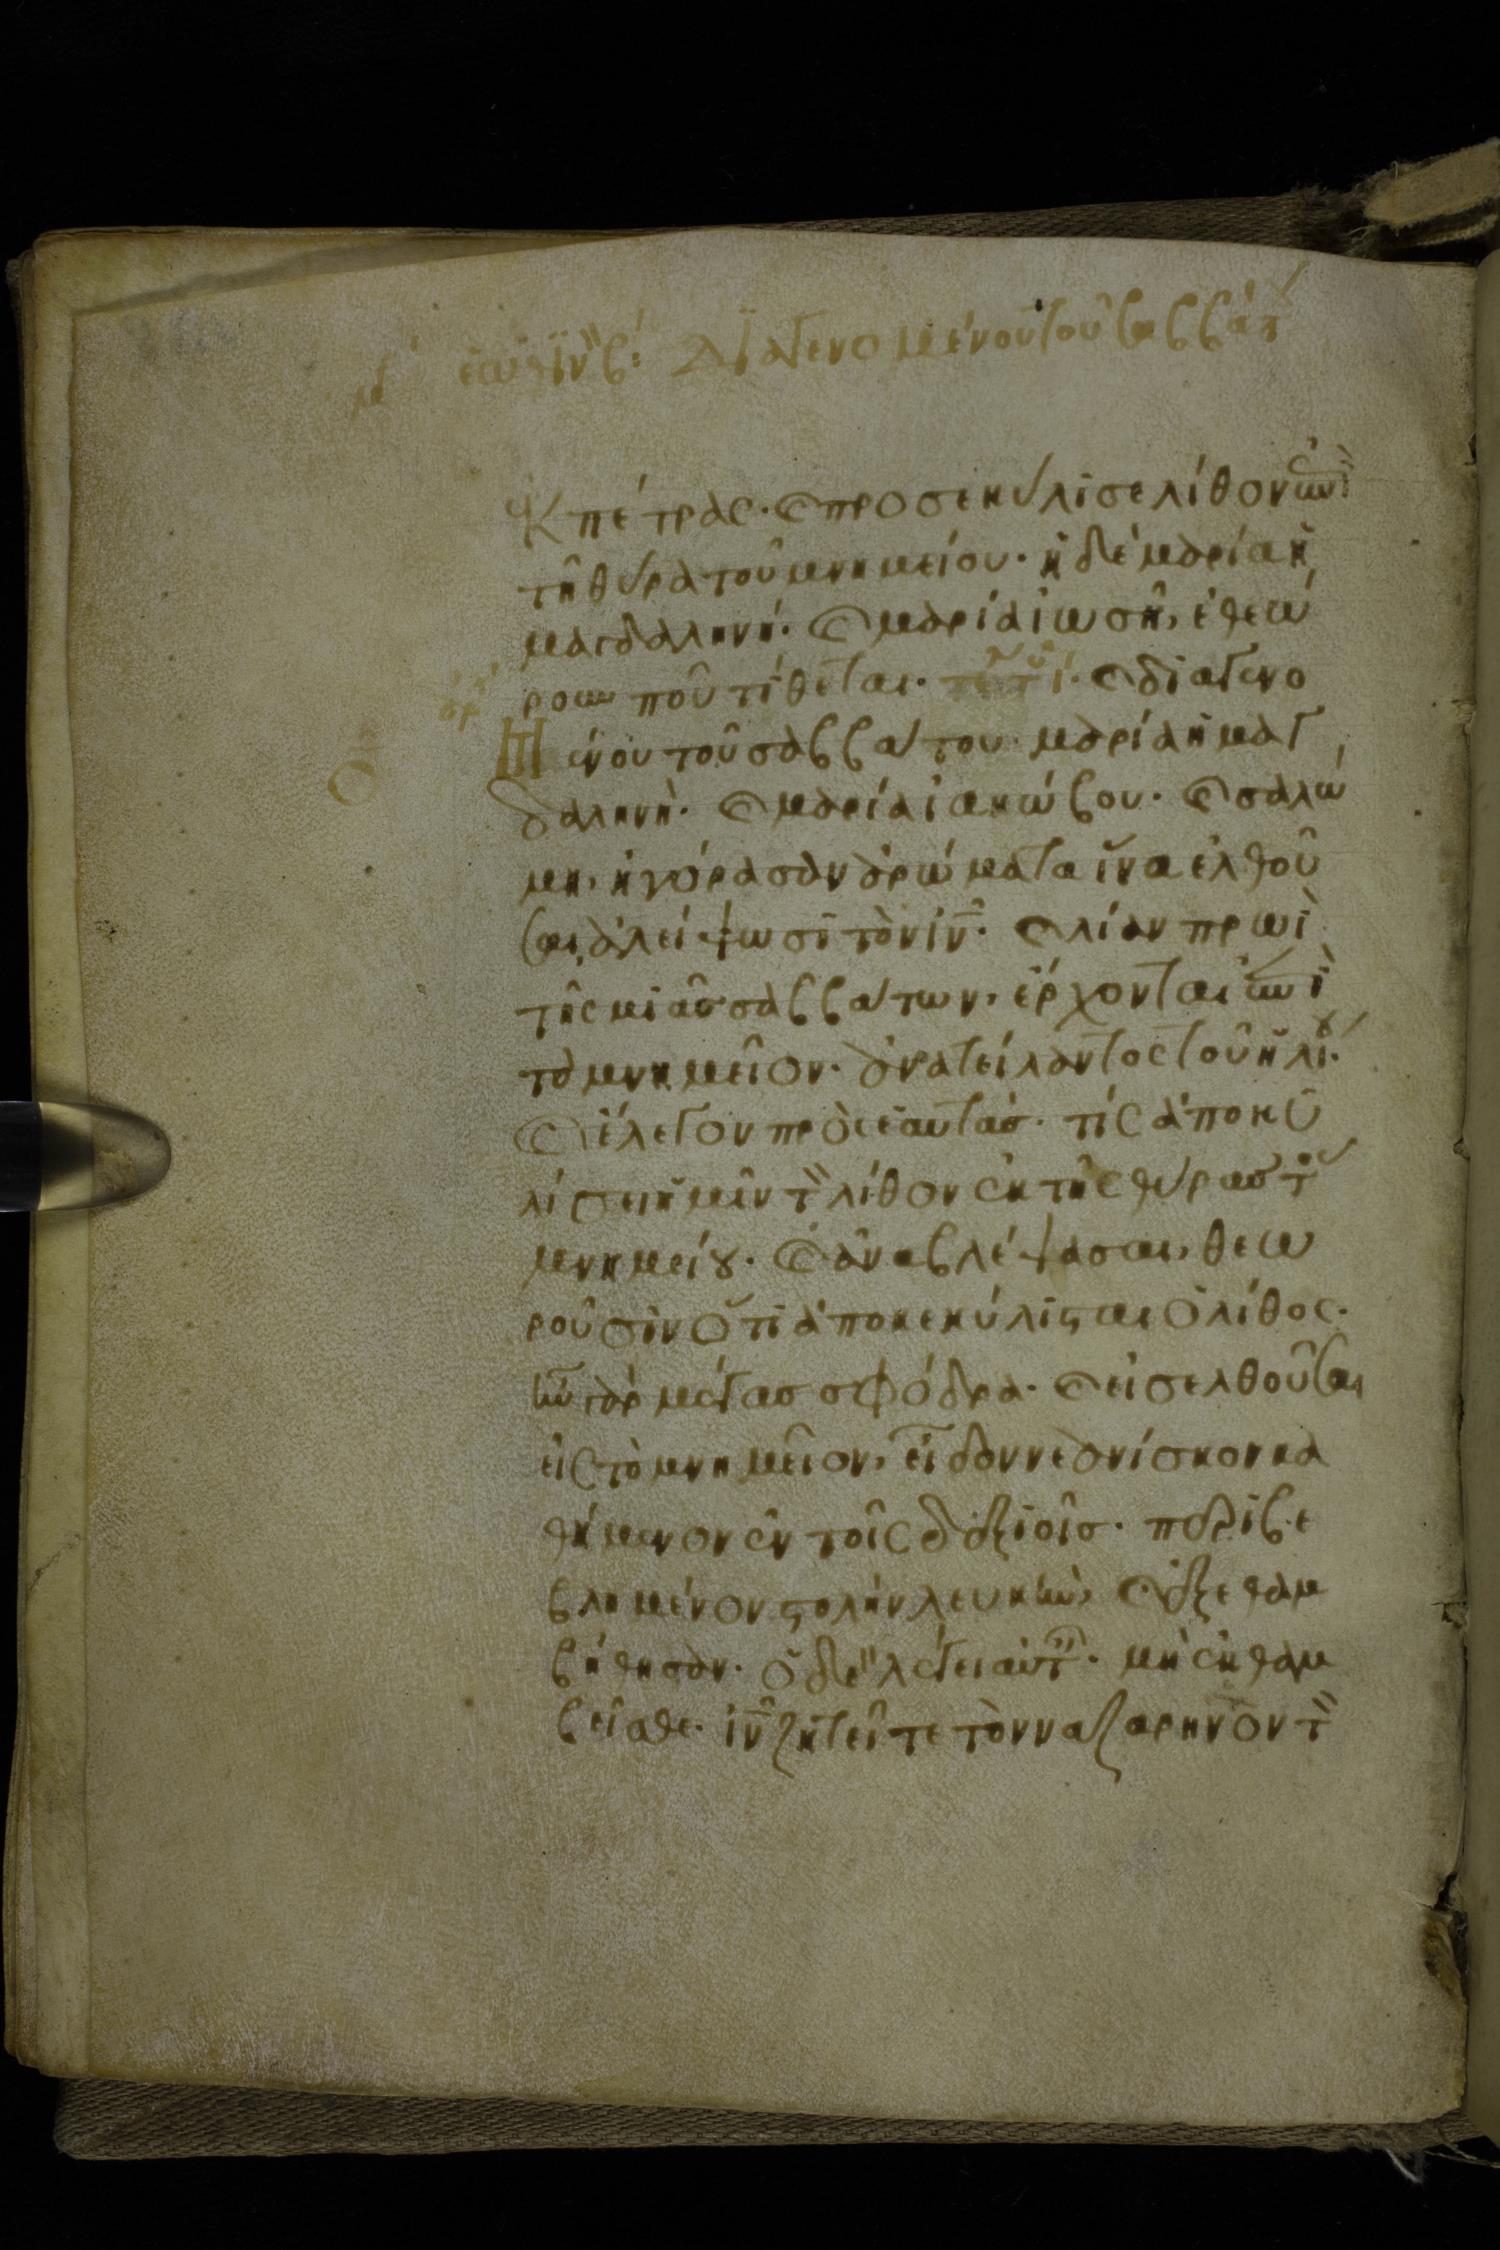 ἑωθιν β΄: Διαγενομένου τοῦ σαββάτ
ἐκ πέτρας· ϗ προσεκύλισε λίθον ἐπὶ
τῆ θύρα τοῦ μνημείου· ἡ δὲ μαρία ἡ
μαγδαληνή· ϗ μαρία ἰωσῆ, ἐθεώ
ρουν ποῦ τίθεται· τε τ · ϗ διαγενο
μένου τοῦ σαββάτου μαρία ἡ μαγ
δαληνὴ· ϗ μαρία ἰακώβου· ϗ σαλώ
μη, ἠγόρασαν ἀρώματα ἵνα ἐλθοῦ
σαι, ἀλείψωσι τὸν ἰν· ϗ λίαν πρωῒ
τῆς μιᾶς σαββάτων, ἔρχονται ἐπὶ
τὸ μνημεῖον· ἀνατείλαντος τοῦ ἡλί·
ϗ ἔλεγον πρὸς ἑαυτάς· τίς ἀποκυ
λίσει ἡμῖν τ λίθον ἐκ τῆς θύρας τ
μνημείȣ· ϗ ἀναβλέψασαι, θεω
ροῦσιν ὅτι ἀποκεκύλισται ὁ λίθος·
ἦν γὰρ μέγας σφόδρα· ϗ εἰσελθοῦσαι
εἰς τὸ μνημεῖον, εἶδον νεανίσκον κα
θήμενον ἐν τοῖς δεξιοῖς· περιβε
βλημένον στολὴν λευκήν, ϗ ἐξεθαμ
βήθησαν· ὁ δὲ λέγει αὐτ· μὴ ἐκθαμ
βεῖσθε· ἰν ζητεῖτε τὸν ναζαρηνὸν τ